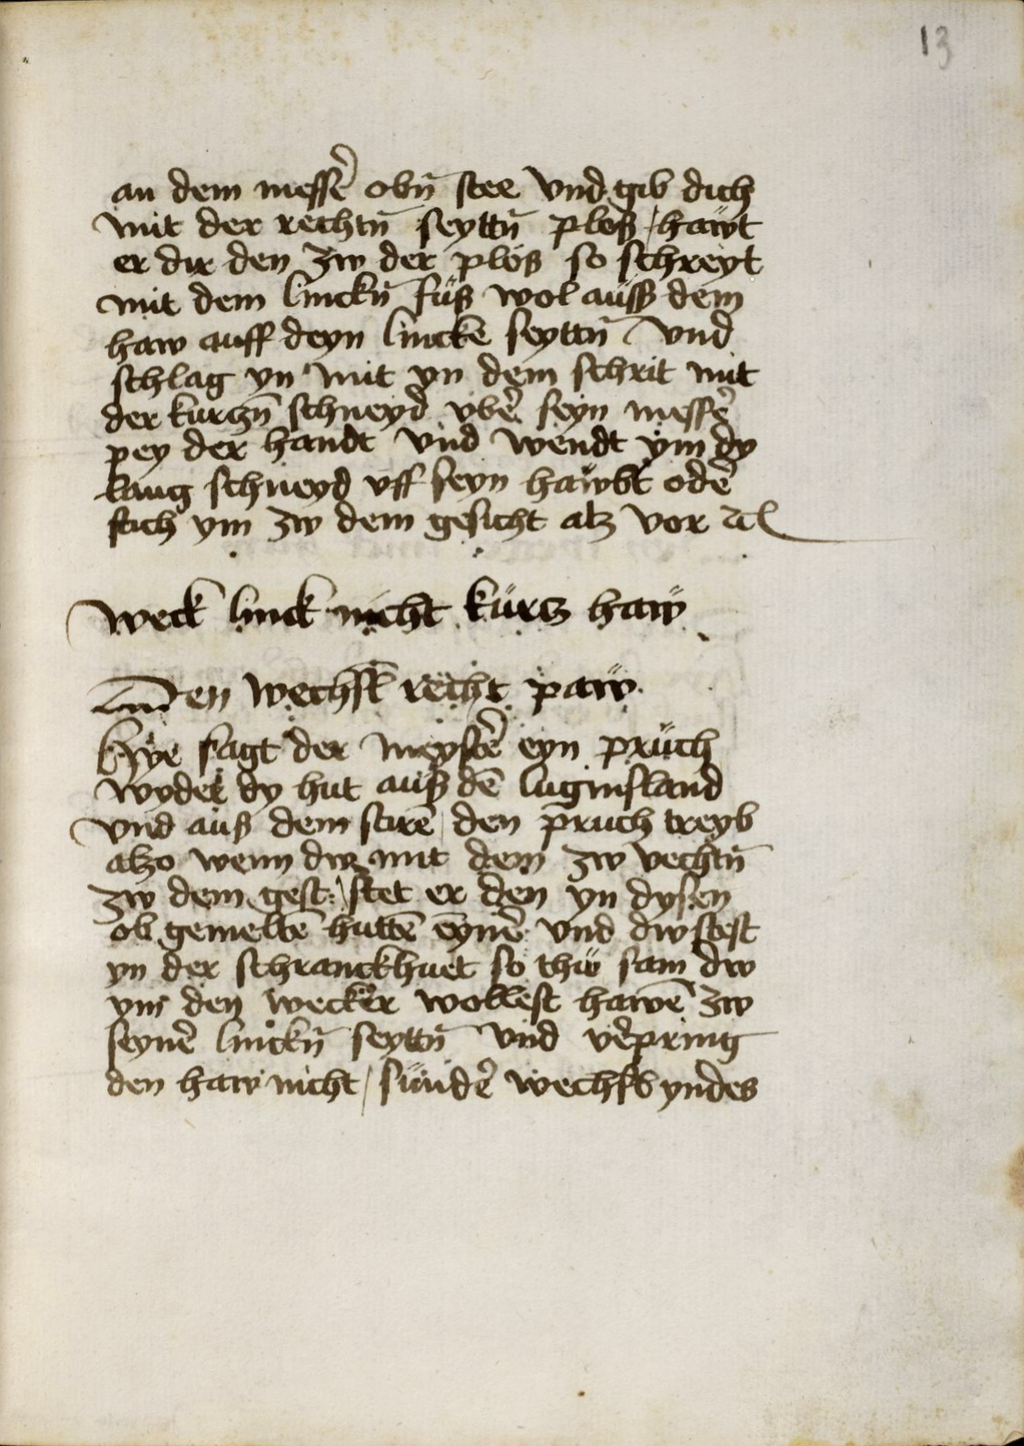 13
an dem messer̄ obñ stee Vnd gib dich
mit der rechtñ seyttñ ploß / hawt
er dir den zw der plöß so schreyt
mit dem linckñ fuß wol auß dem
haw auff deyn linckē seyttñ Vnd
schlag yn mit yn dem schrit mit
der kurczñ schneyd vbē seyn messē
pey der handt Vnd wendt ym dy
lang schneyd vff seyn hawbt odē
stich ym zw dem gesicht alz vor ꝛcͦ
Weck linck nicht kürtz haw
Den wechsel recht paw
Hye sagt der meystē eyn pruch
wyder dy hut auß dē luginsland
Vnd auß dem stirē den pruch treyb
alzo wenn dw mit dem zw vechtñ
zw dem gest: stet er den yn dysen
ob gemeltē huttē eynē Vnd dw stest
yn der schranckhuet so thw sam dw
ym den wecker wollest hawē zw
seynē linckñ seyttñ Vnd vēpring
den haw nicht / sundē wechsel yndes